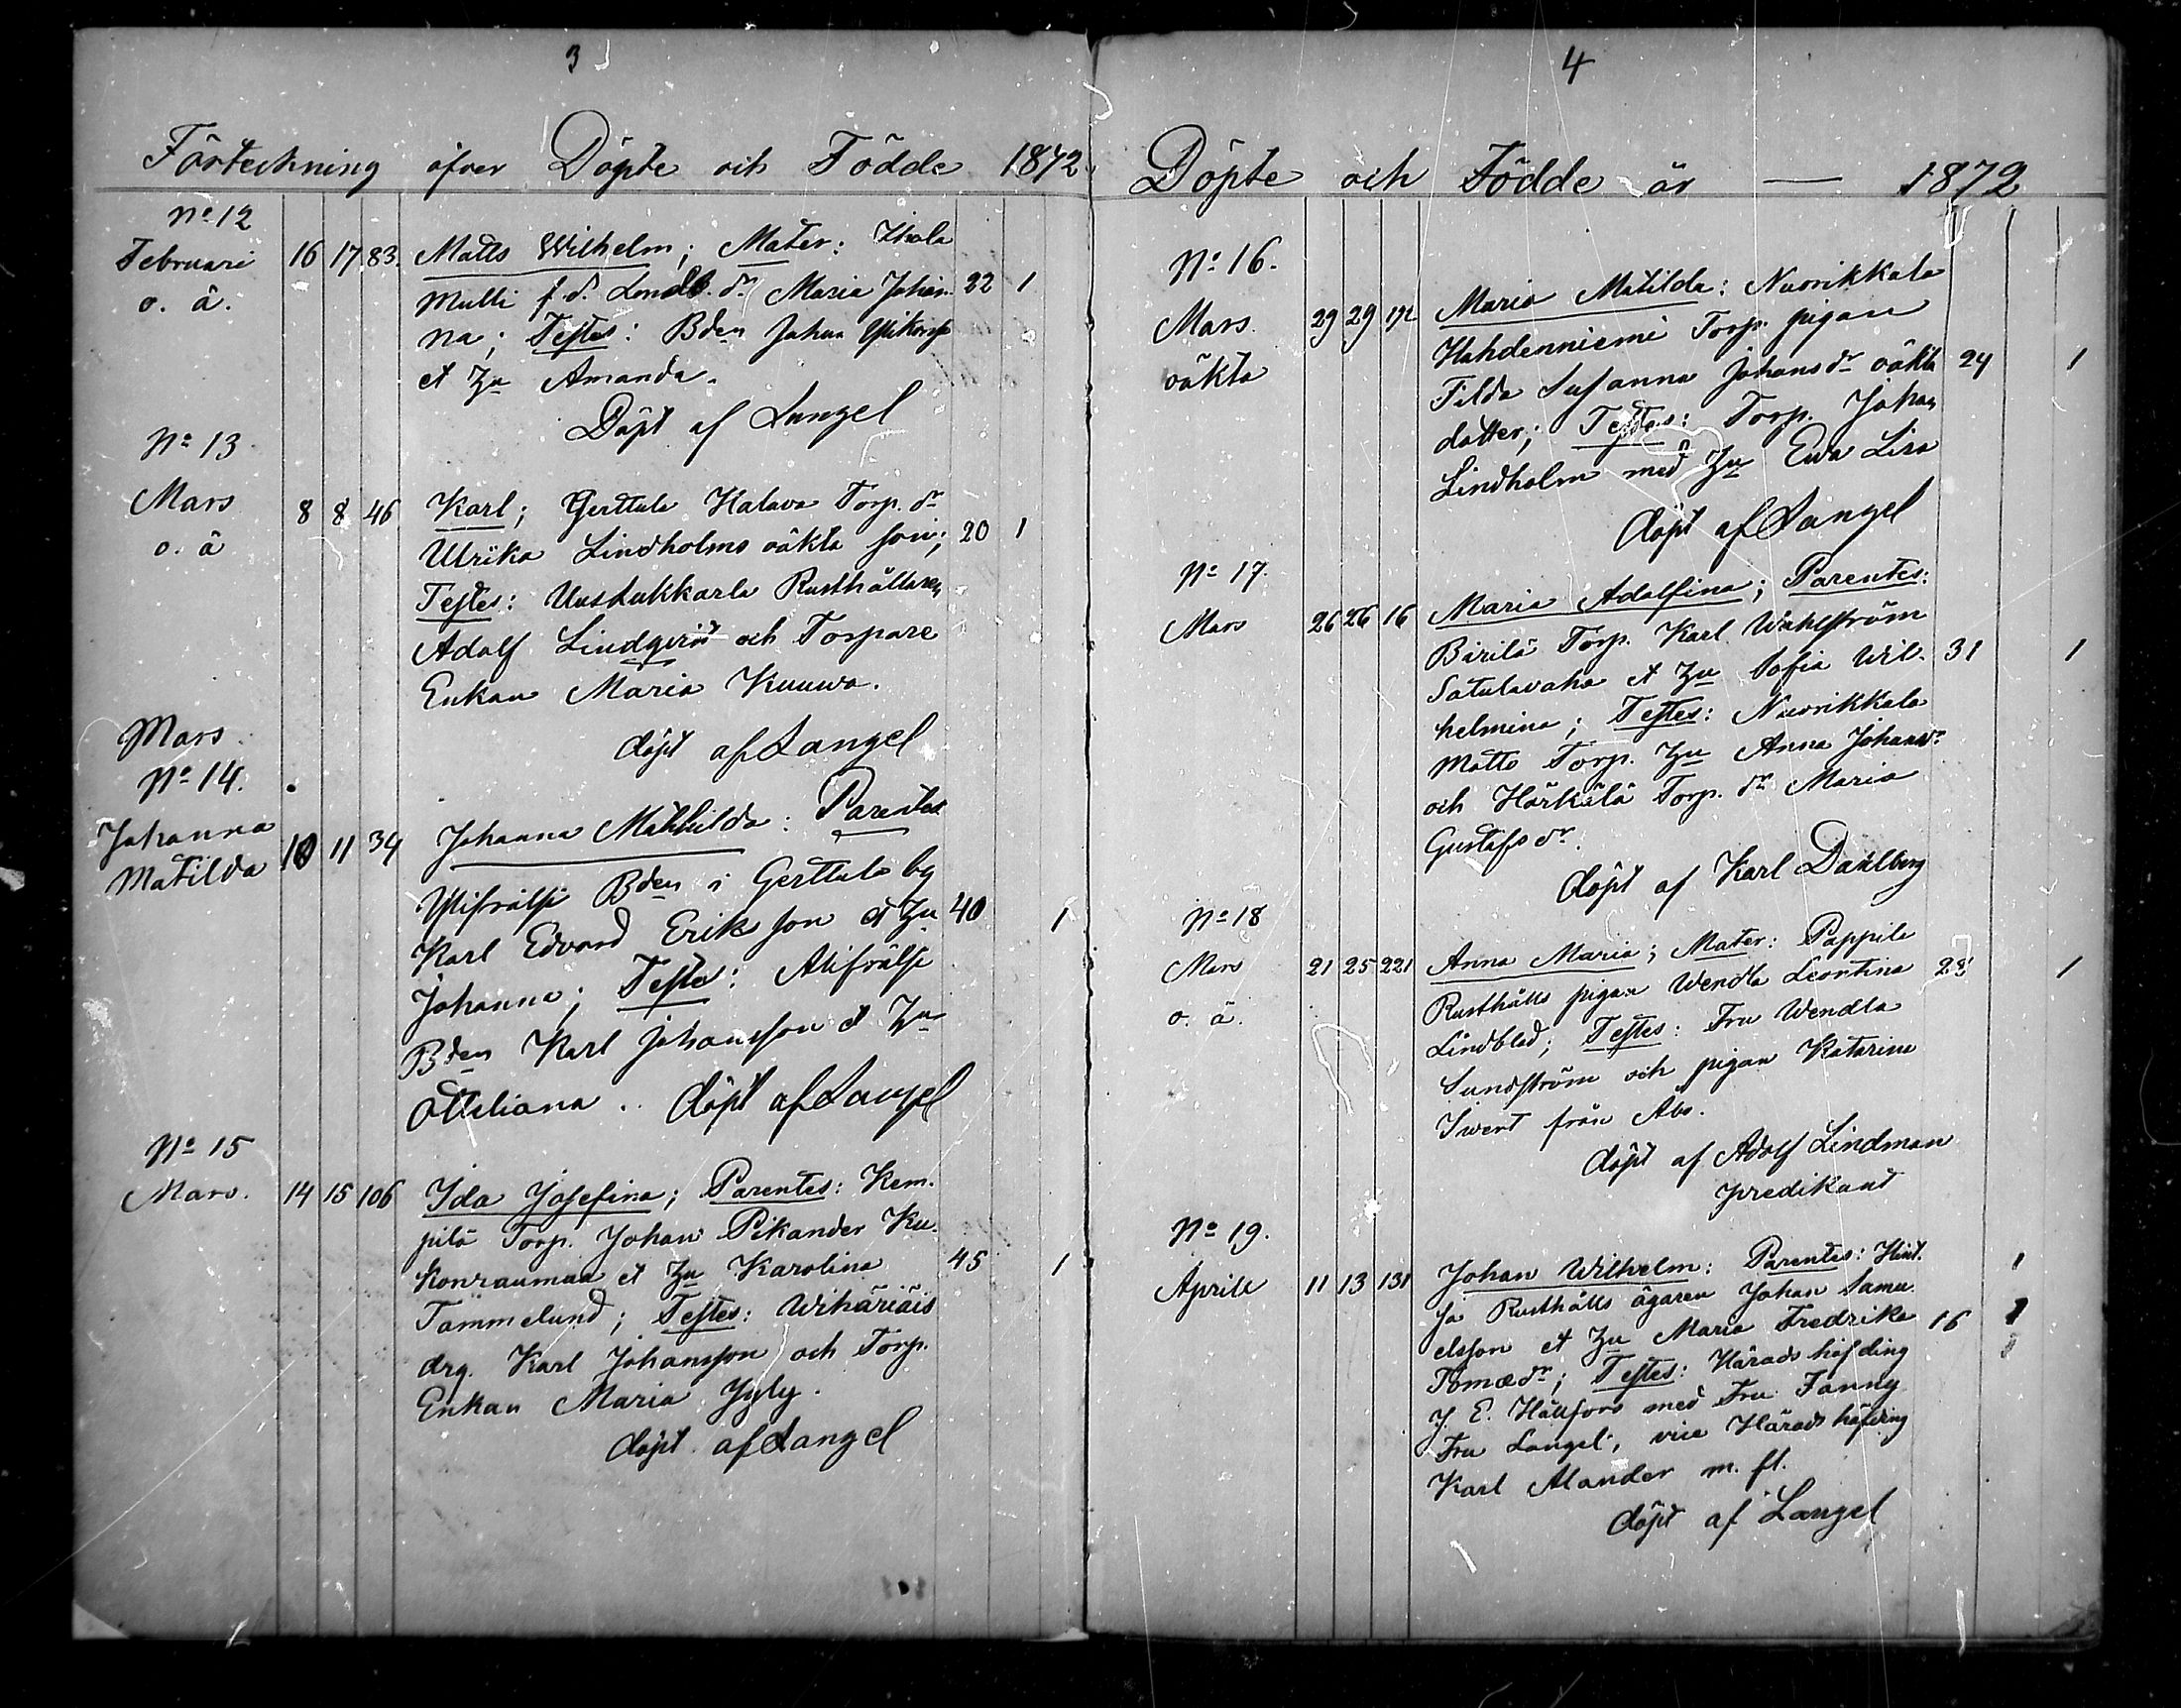 3
Förteckning öfver Döpte och Födde 1872
No 12
Februari 16 17 83. Matts Wilhelm; Mater: Ihala
o. ä. Mulli f.d. Landb. dr Maria Johan- 22 1
na; Testes: Bden Johan
et Hu Amanda.
Döpt af Langel
No 13
Mars 8 8 46 Karl; Gerttula Halava Torp. dr
o. ä Ulrika Lindholms oäkta son; 20 1
Testes: Uuslukkarla Rusthållaren
Adolf Lindqvist och Torpare
Enkan Maria Kuuwa.
döpt af Langel
Mars
No 14.
Johanna Matilda 10 11 34 Johanna Mathilda: Parentes
Ylifrälse Bden i Gerttula by
Karl Edvard Erikson et Hu 40 1
Johanna; Testes: Alifrälse
Bden Karl Johansson et Hu
Ottiliana. döpt af Langel
No 15
Mars. 14 15 106 Ida Josefina; Parentes: Kem-
pilä Torp. Johan Pikander Ku-
konraumaa et Hu Karolina 45 1
Tammelund; Testes: Wihäriäis
drg. Karl Johansson och Torp.
Enkan Maria Jyly.
döpt af Langel
4
Döpte och Födde år — 1872
No 16.
Mars 29 29 Maria Matilda: Nuorikkala
oäkta Hahdenniemi Torp. pigan
Tilda Susanna Johansdr oäkta 24 1
dotter; Testes: Torp. Johan
Lindholm med Hu Ewa Lisa
döpt af Langel
No 17.
Mars 26 26 16 Maria Adolfina; Parentes:
Birilä Torp. Karl Wahlström
Satulavaha et Hu Sofia Wil- 31 1
helmina; Testes: Nuorikkala
Matts Torp. Hu Anna Johansdr
och Härkälä Torp. dr Maria
Gustafsdr.
döpt af Karl Dahlberg
No 18
Mars 21 25 221 Anna Maria; Mater: Pappila
o. ä. Rusthålls pigan Wendla Leontina 28 1
Lindblad; Testes: Fru Wendla
Sundström och pigan Katarina
Iwert från Åbo.
döpt af Adolf Lindman
predikant
No 19.
Aprill 11 13 131 Johan Wilhelm: Parentes: Hint- 1
sa Rusthålls ägaren Johan Samu-
elsson et Hu Maria Fredrika 16 1
Tomædr; Testes: Häradshöfding
J. E. Hällfors med Fru Fanny
Fru Langel, vice Häradshöfding
Karl Alander m. fl.
döpt af Langel